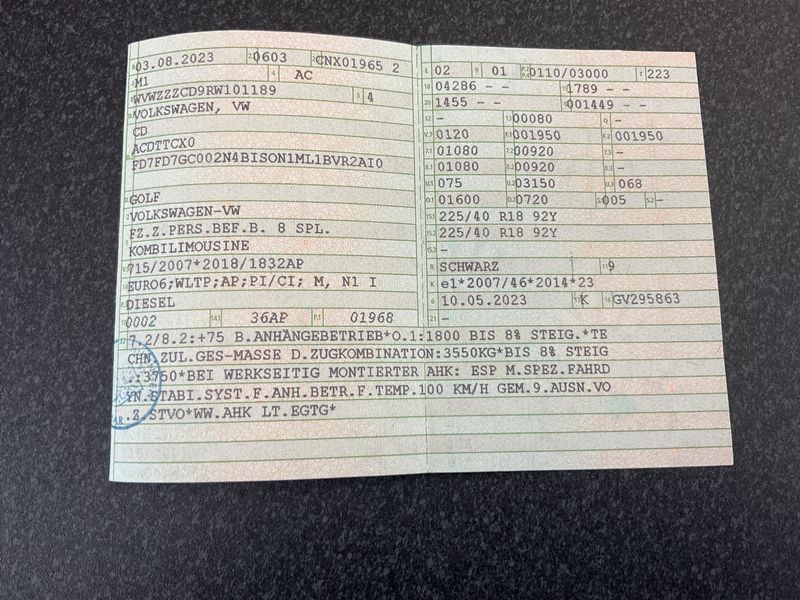 03.08.2023 0603 CNX01965 2
M1 AC
WVWZZZCD9RW101189 4
VOLKSWAGEN, VW
CD
ACDTTCX0
FD7FD7GC002N4BISON1ML1BVR2AI0
GOLF
VOLKSWAGEN-VW
FZ.Z.PERS.BEF.B. 8 SPL.
KOMBILIMOUSINE
715/2007*2018/1832AP
EURO6;WLTP;AP;PI/CI; M, N1 I
DIESEL
0002 36AP 01968
02 01 0110/03000 223
04286 - - 1789 - -
1455 - - 001449 - -
- 00080 -
0120 001950 001950
01080 00920 -
01080 00920 -
075 03150 068
01600 0720 005 -
225/40 R18 92Y
225/40 R18 92Y
-
SCHWARZ 9
e1*2007/46*2014*23
10.05.2023 K GV295863
-
7.2/8.2:+75 B.ANHÄNGEBETRIEB*O.1:1800 BIS 8% STEIG.*TE
CHN.ZUL.GES-MASSE D.ZUGKOMBINATION:3550KG*BIS 8% STEIG
.:3750*BEI WERKSEITIG MONTIERTER AHK: ESP M.SPEZ.FAHRD
YN.STABI.SYST.F.ANH.BETR.F.TEMP.100 KM/H GEM.9.AUSN.VO
.Z.STVO*WW.AHK LT.EGTG*